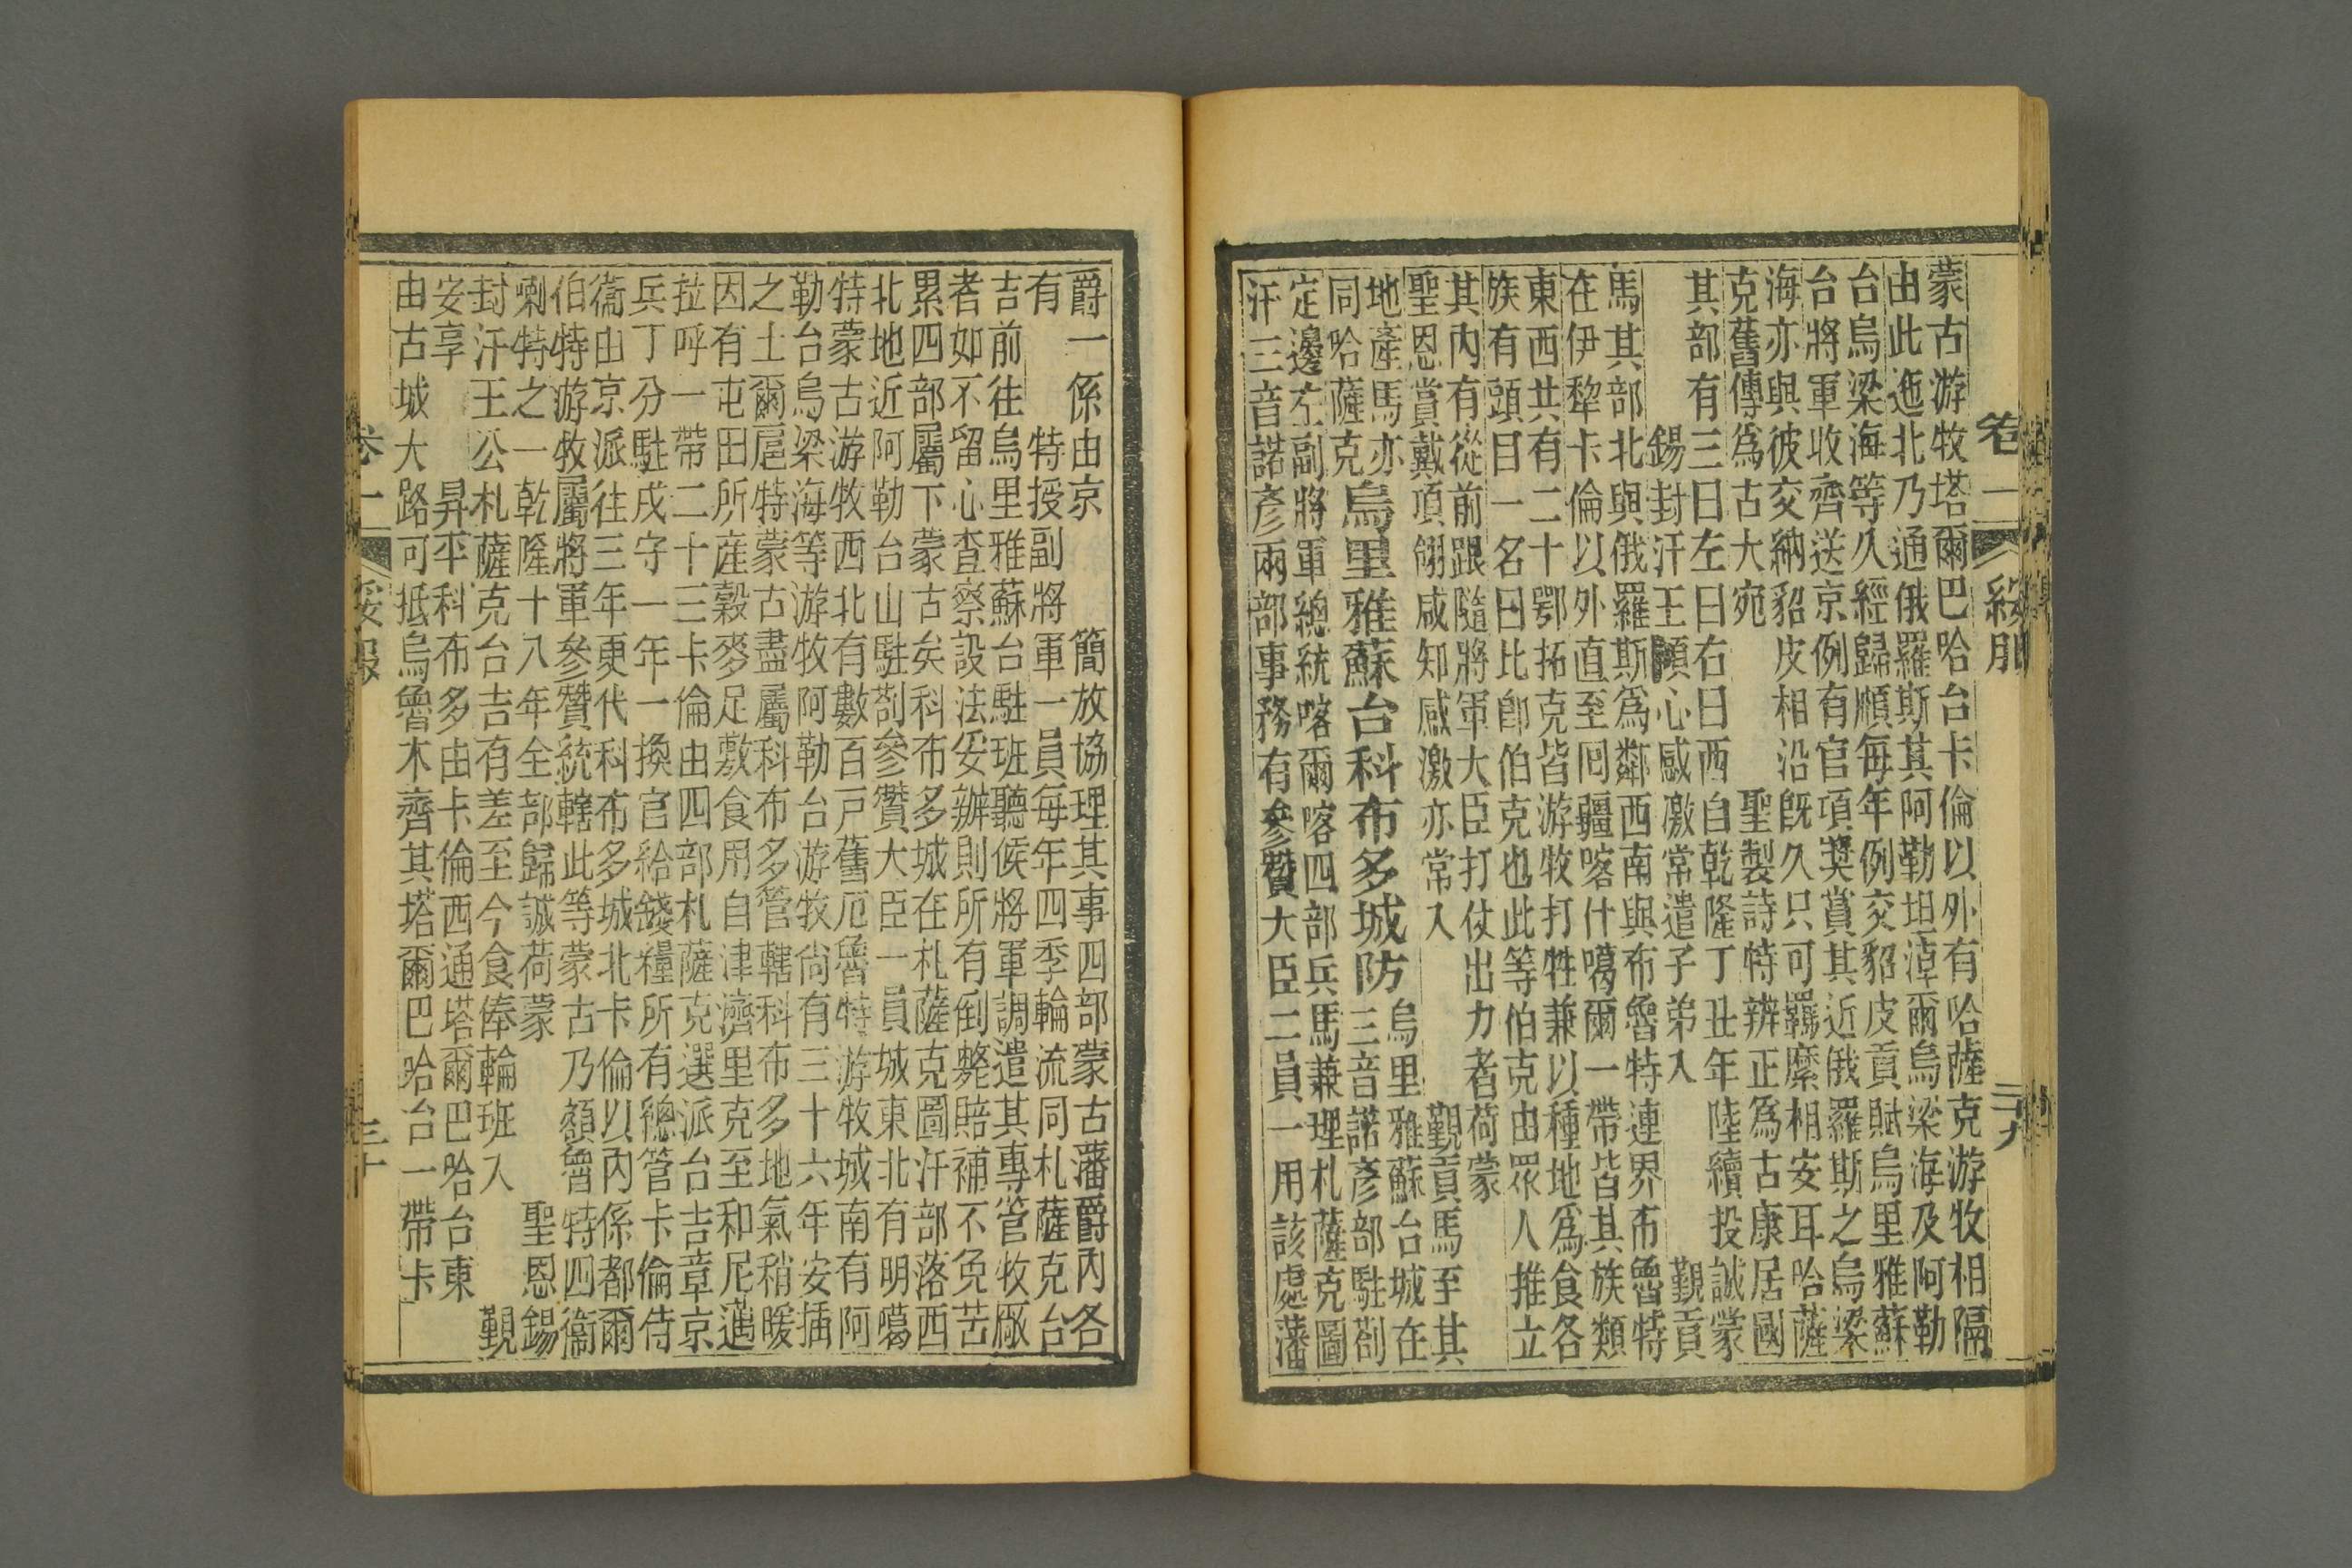 蒙古游牧塔爾巴哈台卡倫以外有哈薩克游牧相隔
由此迤北乃通俄羅斯其阿勒坦淖爾烏梁海及阿勒
台烏梁海等久經歸順每年例交貂皮貢賦烏里雅蘇
台將軍收齊送京例有官項獎賞其近俄羅斯之烏梁
海亦與彼交納貂皮相沿旣久只可羈縻相安耳哈薩
克舊傳爲古大宛 聖製詩特辨正爲古康居國
其部有三曰左曰右曰西自乾隆丁丑年陸續投誠蒙
錫封汗王傾心感激常遣子弟入 覲貢
馬其部北與俄羅斯爲鄰西南與布魯特連界布魯特
在伊犂卡倫以外直至囘疆喀什噶爾一帶皆其族類
東西共有二十鄂拓克皆游牧打牲兼以種地爲食各
族有頭目一名曰比卽伯克也此等伯克由眾人推立
其內有從前跟隨將軍大臣打仗出力者荷蒙
聖恩賞戴項翎咸知感激亦常入 覲貢馬至其
地產馬亦
同哈薩克
烏里雅蘇台科布多城防
烏里雅蘇台城在
三音諾彥部駐劄
定邊左副將軍總統喀爾喀四部兵馬兼理札薩克圖
汗三音諾彥兩部事務有參贊大臣二員一用該處藩
卷二 綏服 二十九
爵一係由京 簡放協理其事四部蒙古藩爵內各
有 特授副將軍一員每年四季輪流同札薩克台
吉前往烏里雅蘇台駐班聽候將軍調遣其專管牧廠
者如不留心查察設法妥辦則所有倒斃賠補不免苦
累四部屬下蒙古矣科布多城在札薩克圖汗部落西
北地近阿勒台山駐劄參贊大臣一員城東北有明噶
特蒙古游牧西北有數百戸舊厄魯特游牧城南有阿
勒台烏梁海等游牧阿勒台游牧尙有三十六年安插
之土爾扈特蒙古盡屬科布多管轄科布多地氣稍暖
因有屯田所產穀麥足敷食用自津濟里克至和尼邁
拉呼一帶二十三卡倫由四部札薩克選派台吉章京
兵丁分駐戍守一年一換官給錢糧所有總管卡倫侍
衞由京派往三年更代科布多城北卡倫以內係都爾
伯特游牧屬將軍參贊統轄此等蒙古乃額魯特四衞
喇特之一乾隆十八年全部歸誠荷蒙 聖恩錫
封汗王公札薩克台吉有差至今食俸輪班入 覲
安享 昇平科布多由卡倫西通塔爾巴哈台東
由古城大路可抵烏魯木齊其塔爾巴哈台一帶卡
卷二 綏服 三十